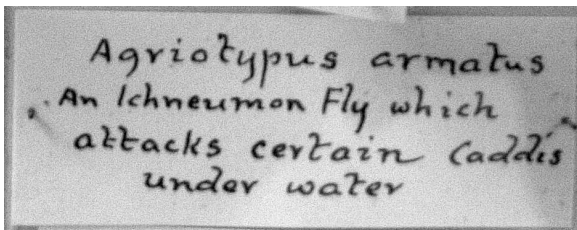 Agriotypus armatus
An Ichneumon Fly which
attacks certain Caddis
under water